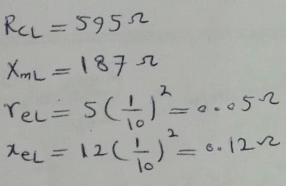 R_CL = 595 Ω
X_mL = 187 Ω
r_eL = 5 (1/10)^2 = 0.05 Ω
x_eL = 12 (1/10)^2 = 0.12 Ω